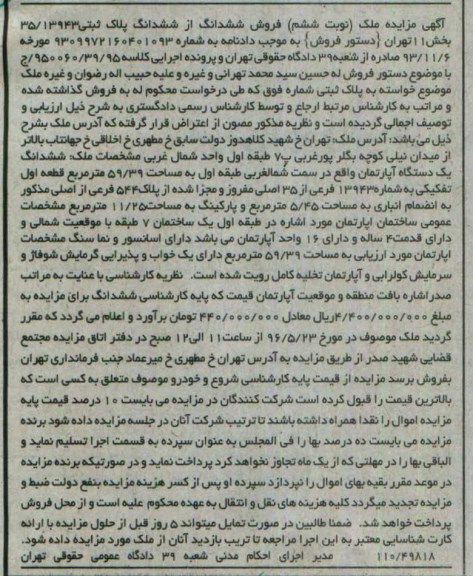 آگهی مزایده ملک (نوبت ششم) فروش ششدانگ از ششدانگ پلاک ثبتی۳۵/۱۳۹۴۳
بخش۱۱تهران {دستور فروش} به موجب دادنامه به شماره ۹۳۰۹۹۷۲۱۶۰۴۰۱۰۹۳ مورخه
۹۳/۱۱/۶ صادره از شعبه۳۹ دادگاه حقوقی تهران و پرونده اجرایی کلاسه۳۹/۹۵/۹۵۰۰۶۰/ج
با موضوع دستور فروش له حسین سید محمد تهرانی و غیره و علیه حبیب اله رضوان و غیره ملک
موضوع خواسته به پلاک ثبتی شماره فوق که طی درخواست محکوم له به فروش گذاشته شده
و مراتب به کارشناس مرتبط ارجاع و توسط کارشناس رسمی دادگستری به شرح ذیل ارزیابی و
توصیف اجمالی گردیده است و نظریه مذکور مصون از اعتراض قرار گرفته که آدرس ملک بشرح
ذیل می باشد: آدرس ملک: تهران خ شهید کلاهدوز دولت سابق خ مطهری خ اخلاقی خ جهانتاب بالاتر
از میدان نیلی کوچه بگلر پورغربی پ۷ طبقه اول واحد شمال غربی مشخصات ملک: ششدانگ
یک دستگاه آپارتمان واقع در سمت شمالغربی طبقه اول به مساحت ۵۹/۳۹ مترمربع قطعه اول
تفکیکی به شماره۱۳۹۴۳ فرعی از ۳۵ اصلی مفروز و مجزا شده از پلاک۵۴۴ فرعی از اصلی مذکور
به انضمام انباری به مساحت ۵/۴۵ مترمربع و پارکینگ به مساحت۱۱/۲۵ مترمربع مشخصات
عمومی ساختمان اپارتمان مورد اشاره در طبقه اول یک ساختمان ۷ طبقه با موقعیت شمالی و
دارای قدمت۴ ساله و دارای ۱۶ واحد آپارتمان می باشد دارای اسانسور و نما سنگ مشخصات
اپارتمان مورد ارزیابی به مساحت ۵۹/۳۹ مترمربع دارای یک خواب و پذیرایی گرمایش شوفاژ و
سرمایش کولرابی و آپارتمان تخلیه کامل رویت شده است. نظریه کارشناسی با عنایت به مراتب
صدر اشاره بافت منطقه و موقعیت آپارتمان قیمت که پایه کارشناسی ششدانگ برای مزایده به
مبلغ ۴/۴۰۰/۰۰۰/۰۰۰ریال معادل ۴۴۰/۰۰۰/۰۰۰ تومان برآورد و اعلام می گردد که مقرر
گردید ملک موصوف در مورخ ۹۶/۵/۲۳ از ساعت۱۱ الی۱۲ صبح در دفتر اتاق مزایده مجتمع
قضایی شهید صدر از طریق مزایده به آدرس تهران خ مطهری خ میرعماد جنب فرمانداری تهران
بفروش برسد مزایده از قیمت پایه کارشناسی شروع و خودرو موصوف متعلق به کسی است که
بالاترین قیمت را قبول کرده است شرکت کنندگان در مزایده می بایست ۱۰ درصد قیمت پایه
مزایده اموال را نقدا همراه داشته باشند تا ترتیب شرکت آنان در جلسه مزایده داده شود برنده
مزایده می بایست ده درصد بها را فی المجلس به عنوان سپرده به قسمت اجرا تسلیم نماید و
الباقی بها را در مهلتی که از یک ماه تجاوز نخواهد کرد پرداخت نماید و در صورتیکه برنده مزایده
در موعد مقرر بقیه بهای اموال را نپردازد سپرده او پس از کسر هزینه مزایده بنفع دولت ضبط و
مزایده تجدید میگردد کلیه هزینه های نقل و انتقال به عهده محکوم علیه است و از محل فروش
پرداخت خواهد شد. ضمنا طالبین در صورت تمایل میتواند ۵ روز قبل از حلول مزایده با ارائه
کارت شناسایی معتبر به این اجرا مراجعه تا تریب بازدید آنان از ملک مورد مزایده داده شود.
۱۱۰/۴۹۸۱۸ مدیر اجرای احکام مدنی شعبه ۳۹ دادگاه عمومی حقوقی تهران